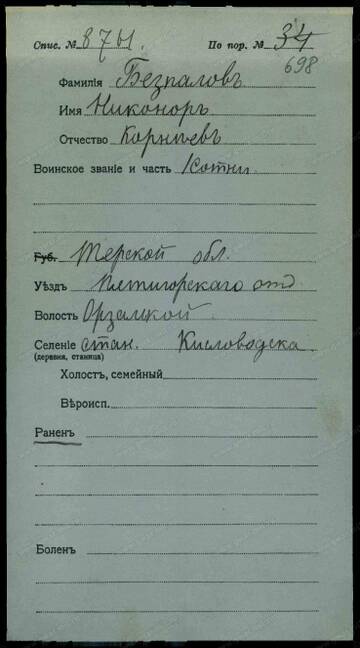 Спис. № 8701. По пор. № 34
698
Фамилія Безпаловъ
Имя Никоноръ
Отчество Корнѣевъ
Воинское званіе и часть 1 сотни.
Губ. Терской обл.
Уѣздъ Пятигорскаго отд.
Волость
Селеніе стан. Кисловодска
(деревня, станица)
Холостъ, семейный
Вѣроисп.
Раненъ
Боленъ